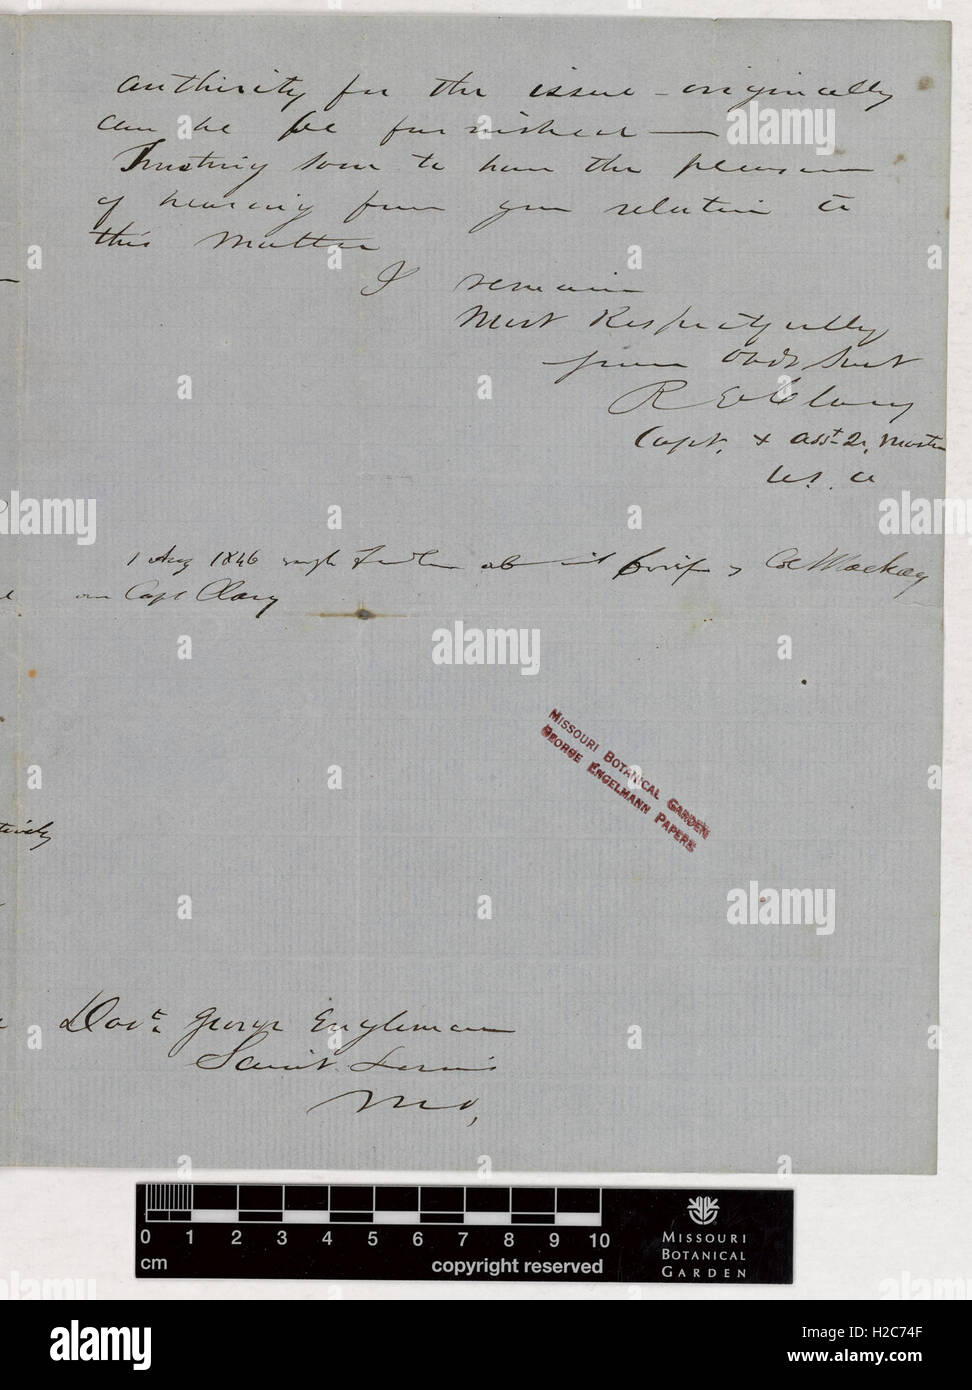 authority for the issue - originally
can be be furnished —
Trusting soon to have the pleasure
of hearing from you relative to
this matter
I remain
Most Respectfully
your Obdt Servt
R E Clary
Capt. & Asst. Qr. Master
U.S. A
1 Aug 1846 Col Mackay
Capt Clary
tively
MISSOURI BOTANICAL GARDEN
GEORGE ENGELMANN PAPERS
Doct. George Engleman
Saint Louis
Mo,
0 1 2 3 4 5 6 7 8 9 10
cm
copyright reserved
MISSOURI
BOTANICAL
GARDEN
alamy
Image ID: H2C74F
www.alamy.com